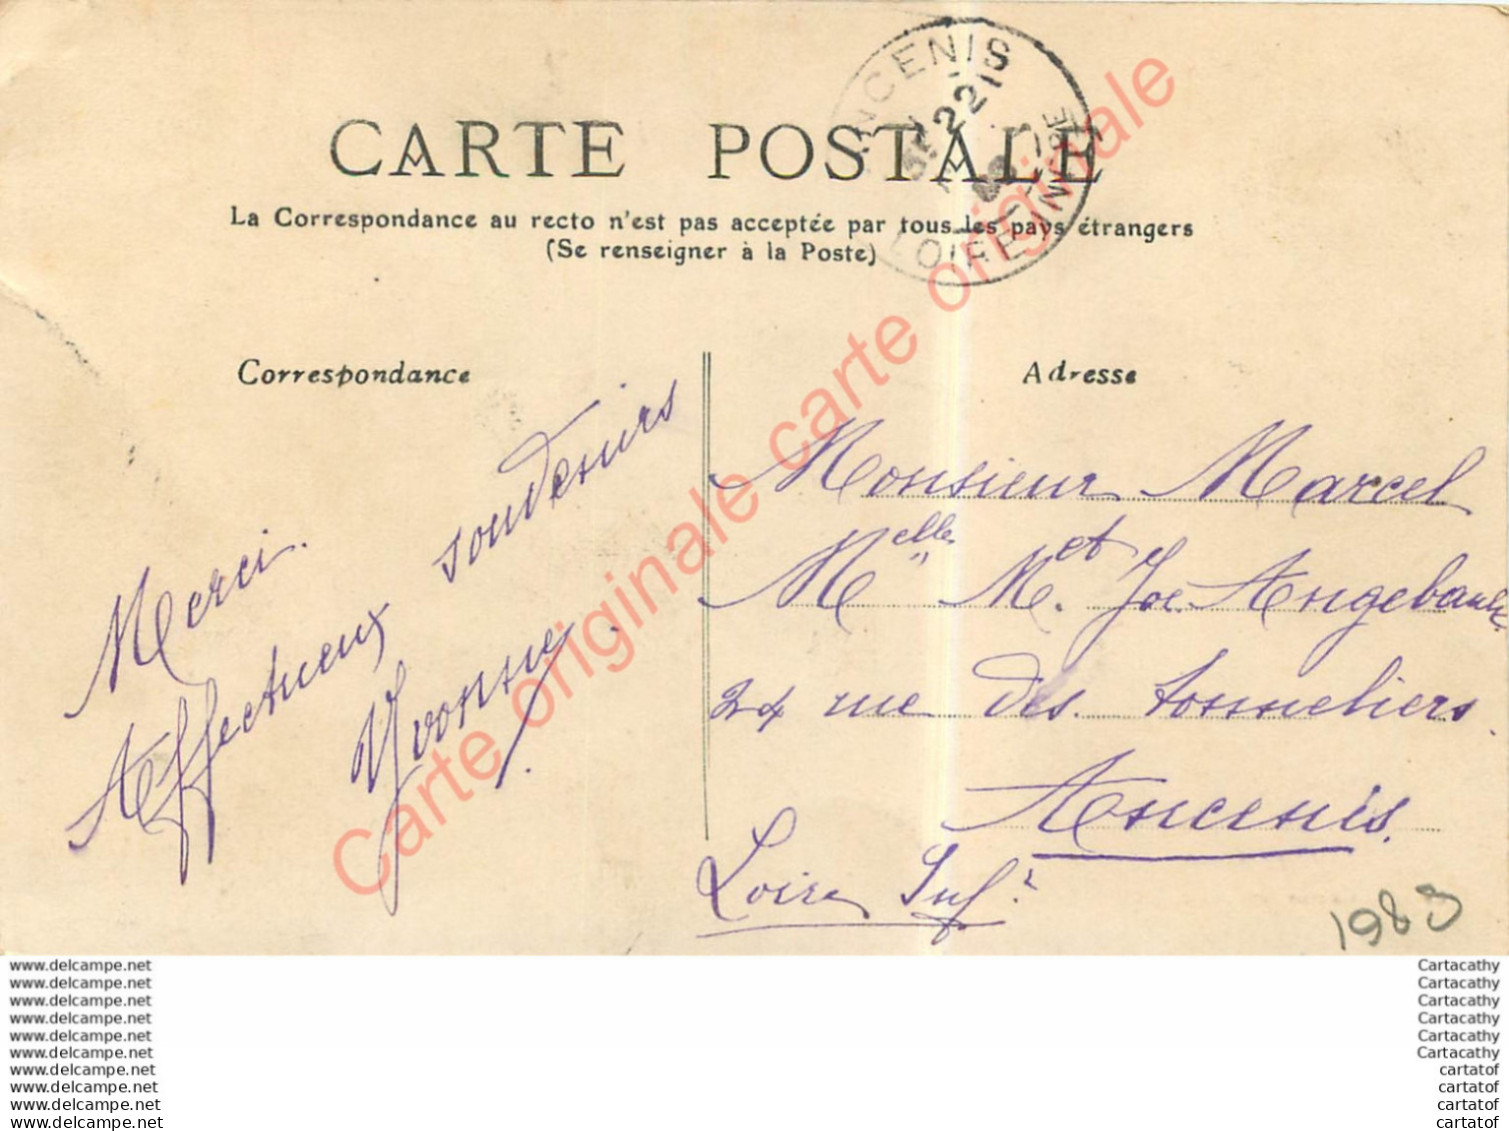 CARTE POSTALE
La Correspondance au recto n'est pas acceptée par tous les pays étrangers
(Se renseigner à la Poste)
ANCENIS
22
LOIRE INFRE
Correspondance
Adresse
Merci.
Affectueux souvenirs
Yvonne.
Monsieur Marcel
Melle M. et Joe Angebault
24 rue des tonneliers.
Ancenis.
Loire Infr
1983
Carte originale carte originale carte originale
www.delcampe.net
www.delcampe.net
www.delcampe.net
www.delcampe.net
www.delcampe.net
www.delcampe.net
www.delcampe.net
www.delcampe.net
www.delcampe.net
www.delcampe.net
Cartacathy
Cartacathy
Cartacathy
Cartacathy
Cartacathy
Cartacathy
cartatof
cartatof
cartatof
cartatof